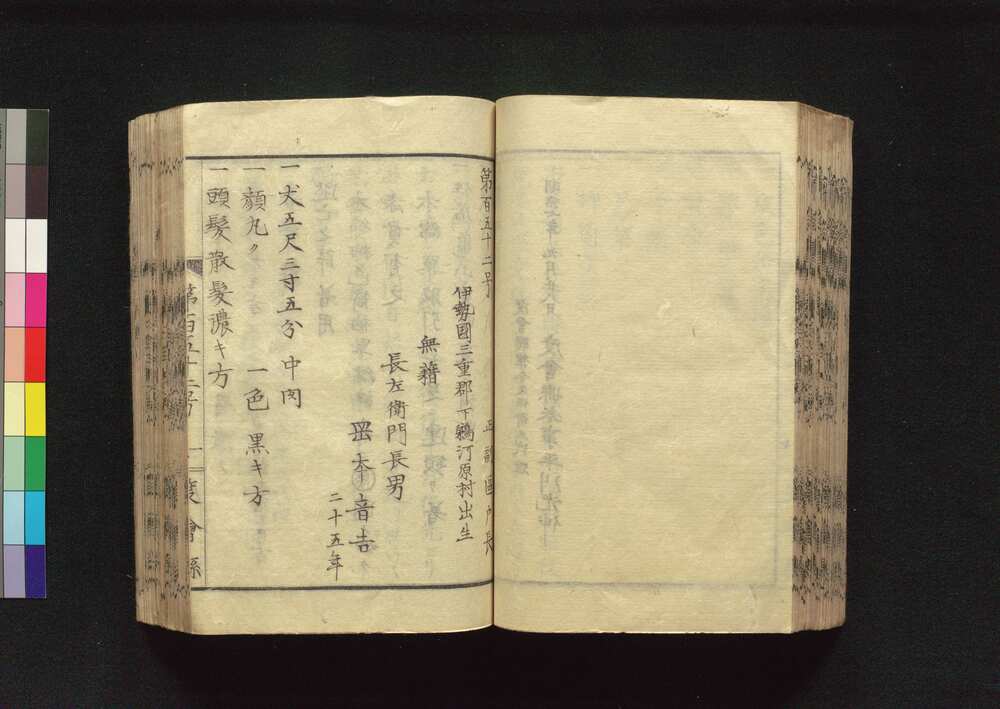 第百五十二号
正副區戸長
伊勢國三重郡下鵜河原村出生
無籍
長左衛門長男
岡本音吉
二十五年
一丈五尺三寸五分 中肉
一顔丸ク 一色黒キ方
一頭髪散髪濃キ方
第百五十二号 一 度會縣